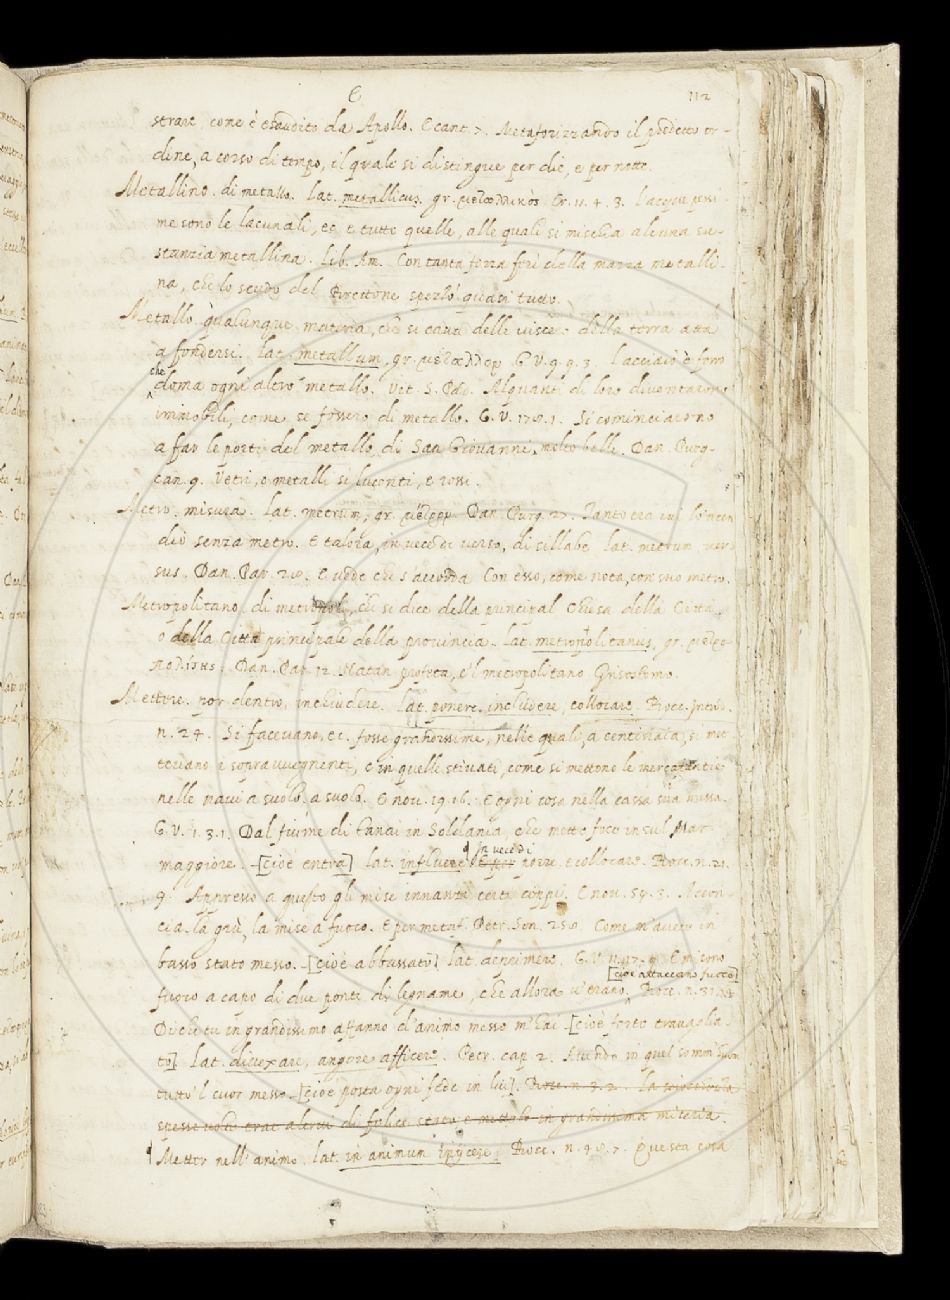 E 112
strare come è esaudito da Apollo. E cant. 7. Metaforizzando il predetto or-
dine, a corso di tempo, il quale si distingue per die, e per notte.
Metallino. di metallo. lat. metallicus. gr. μεταλλικὸς Cr. 11. 4. 3. l'acque pessi-
me sono le lacunali, ec. e tutte quelle, alle quali si mischia alcuna su-
stanzia metallina. lib. Am. Con tanta forza ferì della mazza metalli-
na, che lo scudo del Brettone spezzò quasi tutto.
Metallo qualunque materia, che si cava delle viscere della terra atta
a fondersi. lat. metallum, gr. μέταλλον G. V. 9. 9. 3. l'acciaio è ferro
che doma ogni altro metallo. Vit. S. Pad. Alquanti di loro diventarono
immobili, come se fossero di metallo. G. V. 170. 1. Si cominciarono
a far le porti del metallo di San Giovanni, molto belli. Dan. Purg.
can. 9. Vetri, e metalli si lucenti, e rossi.
Metro. misura. lat. metrum, gr. μέτρον Dan. Purg. 27. Tanto era ivi lo'ncen
dio senza metro. E talora, in vece di verso, di sillabe lat. metrum ver-
sus. Dan. Par. 28. E vede che s'accorda Con esso, come nota, con suo metro.
Metropolitano. di metropoli, che si dice della principal Chiesa della Città,
o della Città principale della provincia. lat. metropolitanus, gr. μετρο-
πολίτης. Dan. Par. 12. Natan profeta, e'l metropolitano Grisostomo.
Mettere. por dentro, inchiudere. lat. ponere, includere, collocare. Bocc. introd.
n. 24. Si facevano, ec. fosse grandissime, nelle quali, a centinaia, si met-
tevano e sopravvegnenti, e in quelle stivati, come si mettono le mercatantie
nelle navi a suolo a suolo. E nov. 19. 16. E ogni cosa nella cassa sua messa.
G. V. 1. 3. 1. Dal fiume di Tanai in Soldania, che mette foce in sul Mar
maggiore. [cioè entra] lat. influere. In vece di porre e collocare. Bocc. n. 21.
9. Appresso a questo gli mise innanzi certi ceppi. E nov. 59. 3. Accon-
cia la giù, la mise a fuoco. E per metaf. Petr. Son. 250. Come m'avete in
basso stato messo. [cioè abbassato] lat. deprimere. G. V. 11. 17. 9. E misono
[cioè attaccano fuoco]
fuoco a capo di due ponti di legname, che allora v'erano. Bocc. n. 31. 18
Di che tu in grandissimo affanno d'animo messo m'hai. [cioè forte travaglia-
to]. lat. divexare, angore afficere. Petr. cap. 2. Avendo in quel somm'uom
tutto'l cuor messo. [cioè posta ogni fede in lui]. Bocc. n. 3. 2. la sciocchezza
spesse volte trae altrui di felice stato e mettelo in grandissima miseria.
Metter nell'animo. lat. in animum injicere. Bocc. n. 48. 7. Questa cosa